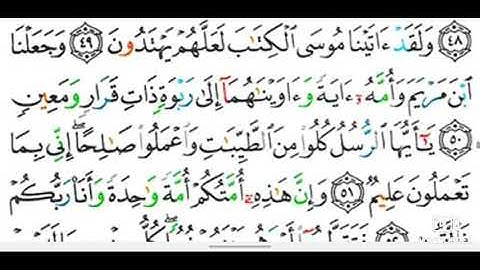 ﴿٤٨﴾ وَلَقَدْ ءَاتَيْنَا مُوسَى ٱلْكِتَٰبَ لَعَلَّهُمْ يَهْتَدُونَ ﴿٤٩﴾ وَجَعَلْنَا
ٱبْنَ مَرْيَمَ وَأُمَّهُۥٓ ءَايَةً وَءَاوَيْنَٰهُمَآ إِلَىٰ رَبْوَةٍ ذَاتِ قَرَارٍ وَمَعِينٍ
﴿٥٠﴾ يَٰٓأَيُّهَا ٱلرُّسُلُ كُلُوا۟ مِنَ ٱلطَّيِّبَٰتِ وَٱعْمَلُوا۟ صَٰلِحًا ۖ إِنِّى بِمَا
تَعْمَلُونَ عَلِيمٌ ﴿٥١﴾ وَإِنَّ هَٰذِهِۦٓ أُمَّتُكُمْ أُمَّةً وَٰحِدَةً وَأَنَا۠ رَبُّكُمْ